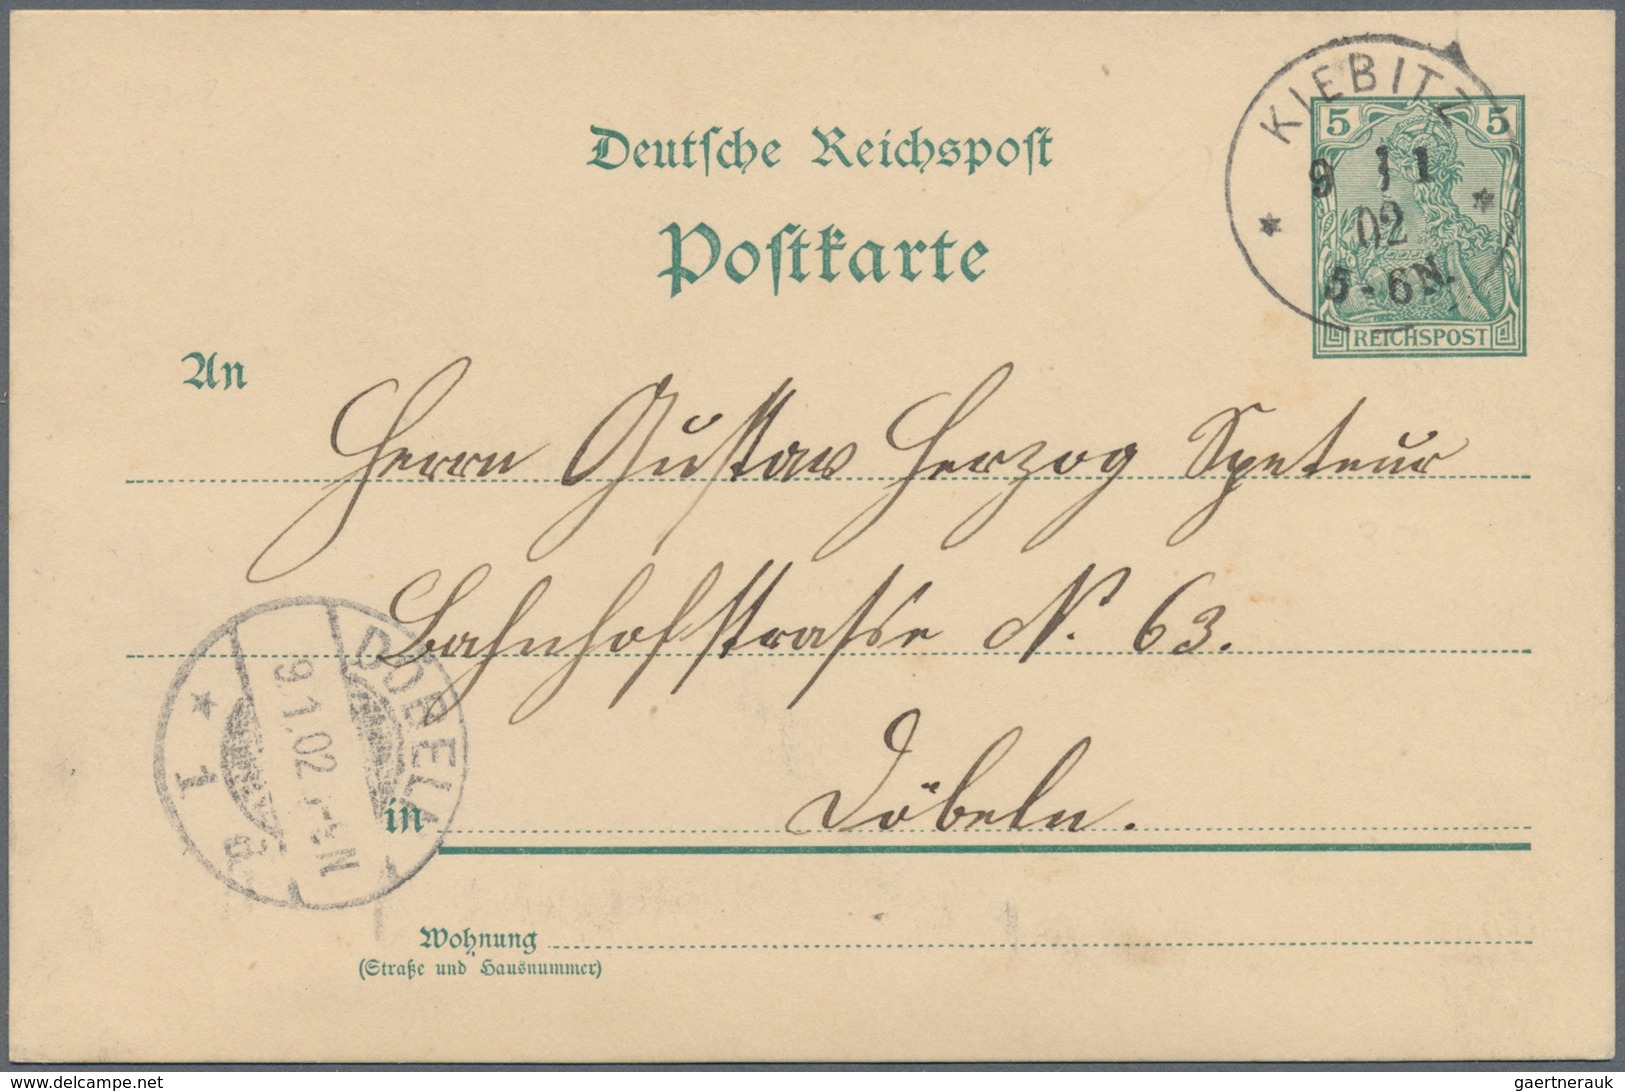 Deutsche Reichspost
Postkarte
KIEBITZ
5 5
9 1 1
02
5-6N.
REICHSPOST
An
Herrn Gustav Herzog Speteur
Bahnhofstrasse N. 63.
Döbeln.
in
DÖBELN
9.1.02
N
1
d.
Wohnung
(Straße und Hausnummer)
www.delcampe.net
gaertnerauk